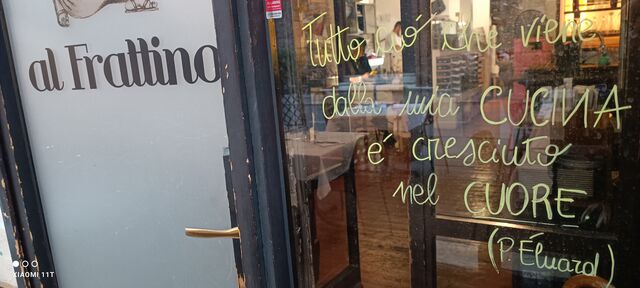 al Frattino
Tutto ciò che viene
dalla mia CUCINA
è cresciuto
nel CUORE
(P. Éluard)
XIAOMI 11T